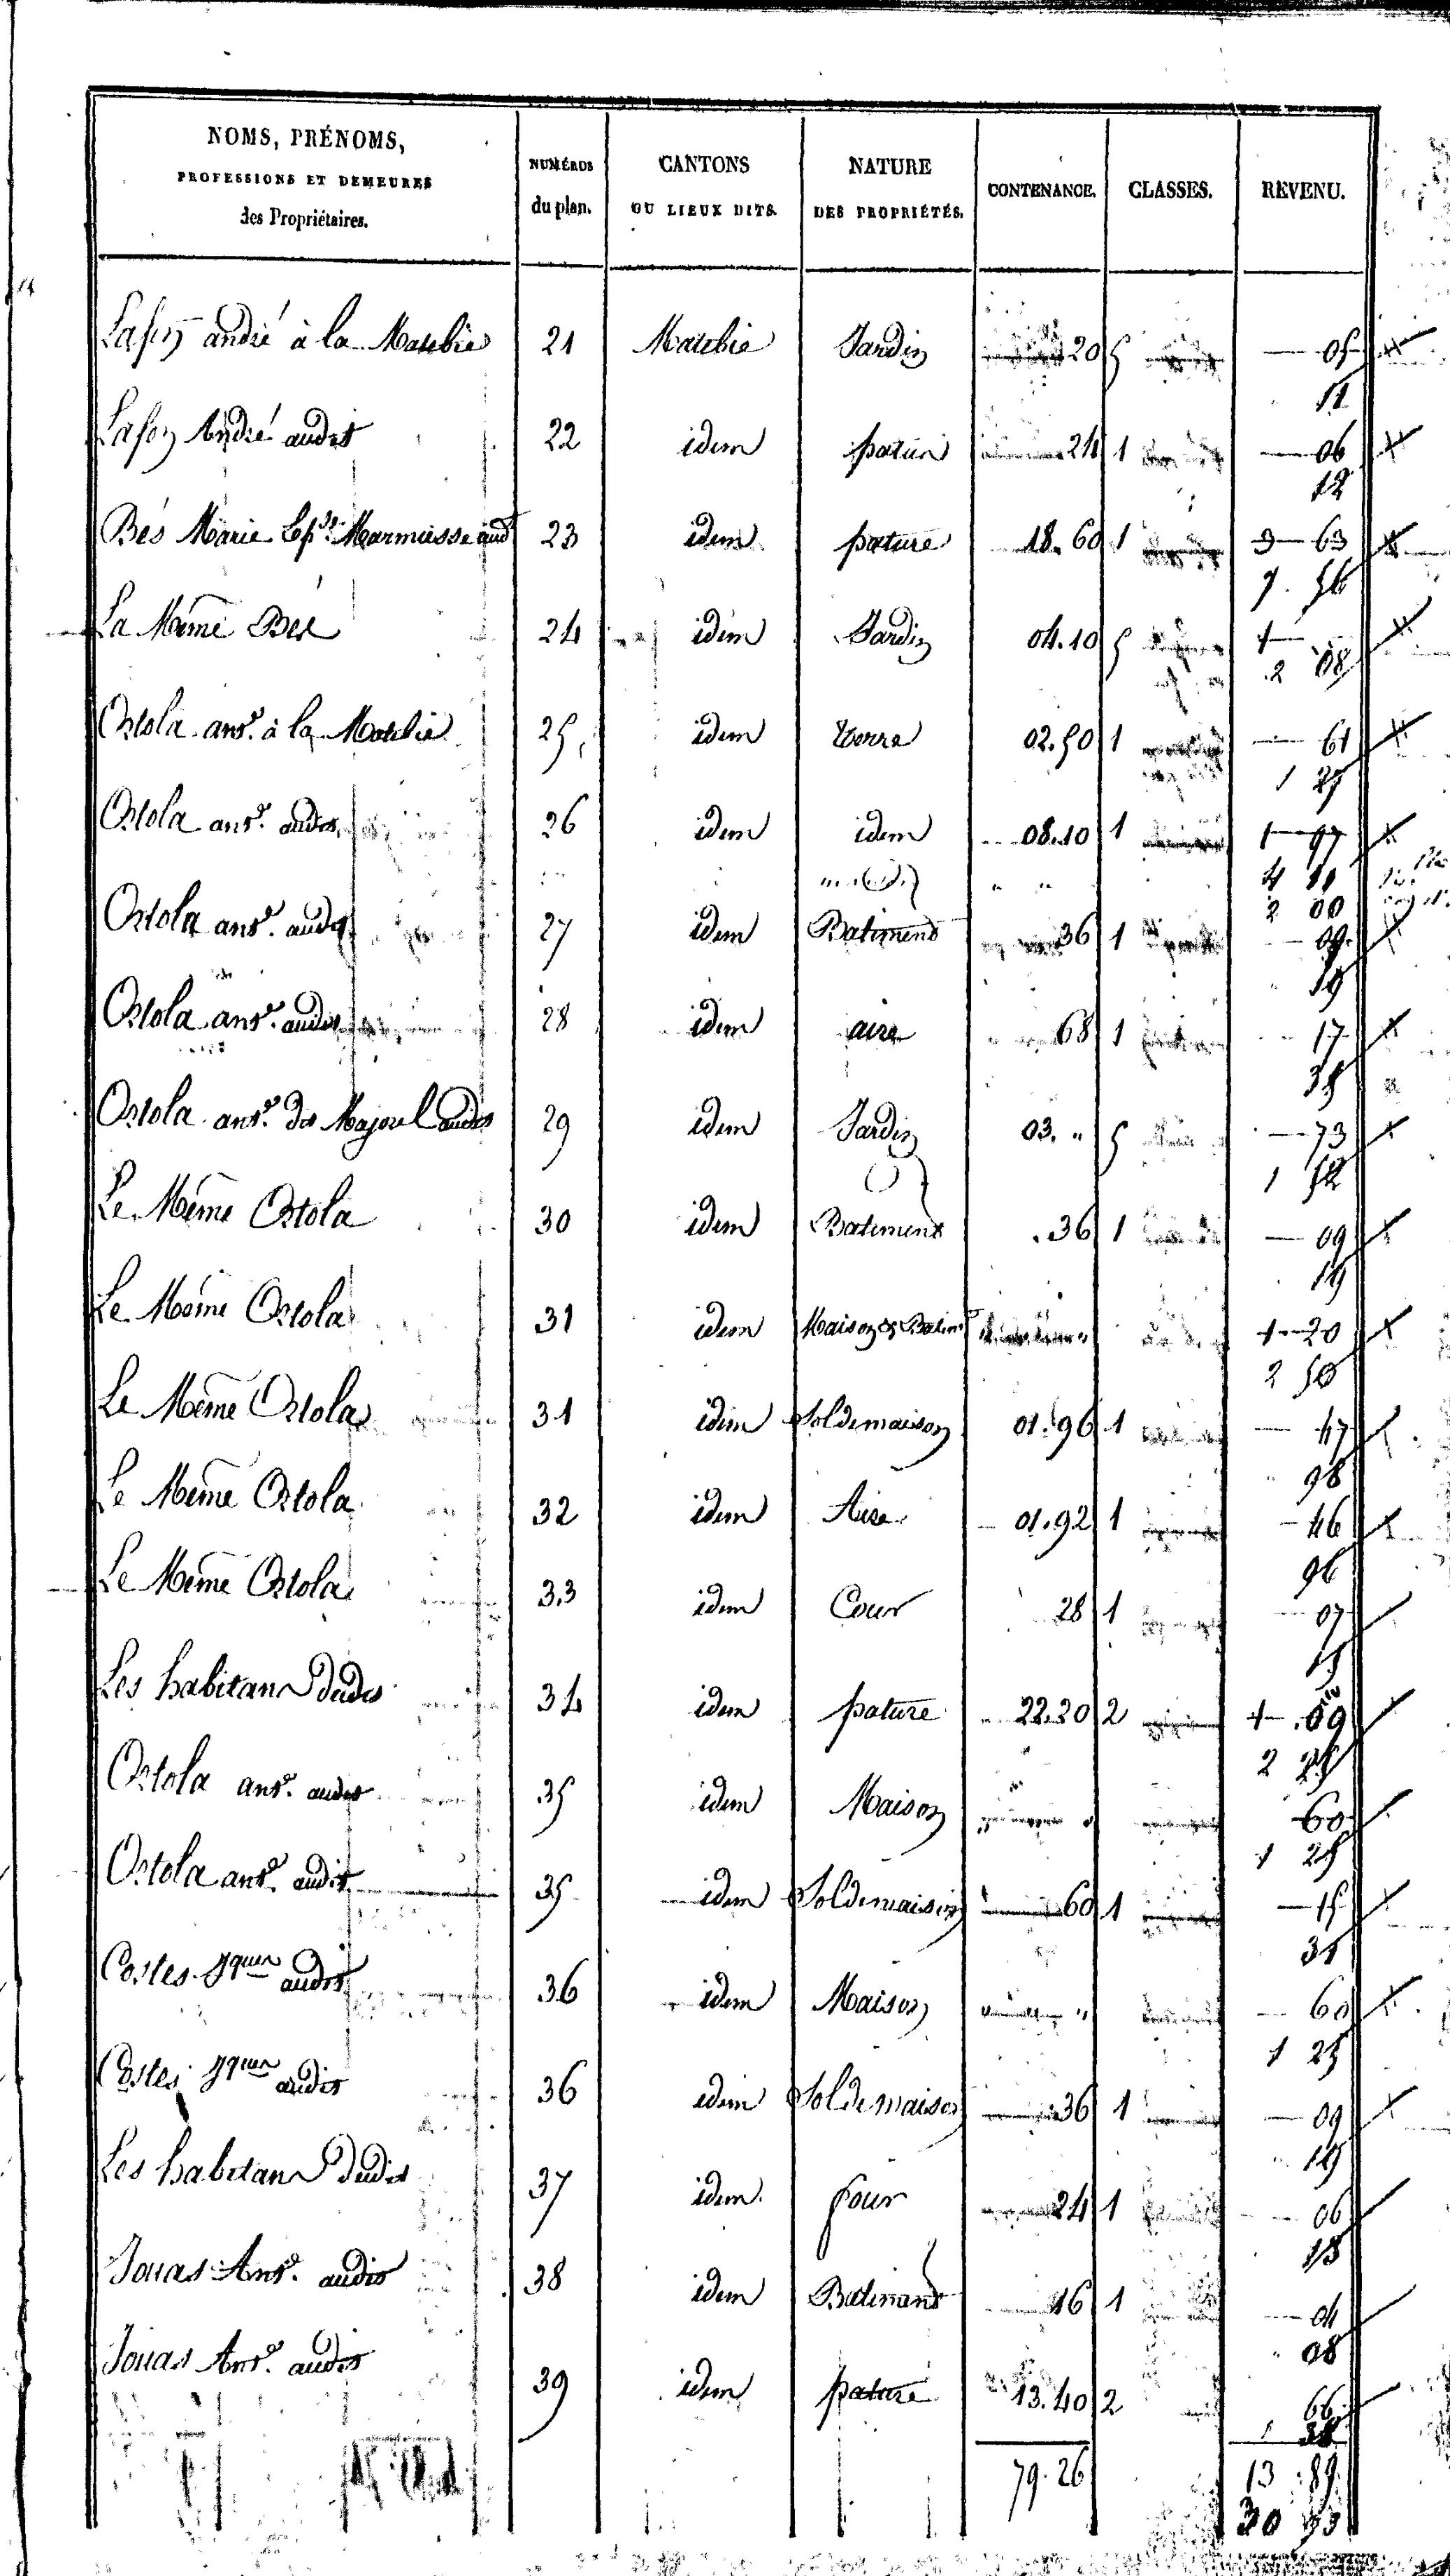 NOMS, PRÉNOMS,
PROFESSIONS ET DEMEURES
des Propriétaires.
NUMÉROS
du plan.
CANTONS
OU LIEUX DITS.
NATURE
DES PROPRIÉTÉS.
CONTENANCE.
CLASSES.
REVENU.
Lafon andré à la 21 Jardin 20 5 05
11
Lafon André audit 22 idem patus 24 1 06
12
Bés Marie Marmiesse aud 23 idem pature 18.60 1 3 63
7.56
La Même Bés 24 idem Jardin 04.10 5 1
2 08
Ostola ant. à la 25 idem terre 02.50 1 61
1 27
Ostola ant. audit 26 idem idem 08.10 1 1 97
4 11
2 00
Ostola ant. audit 27 idem Batiment 36 1 09
19
Ostola ant. audit 28 idem aire 68 1 17
35
Ostola ant. dit Majorel audit 29 idem Jardin 03. " 5 73
1 52
Le Même Ostola 30 idem Batiment .36 1 09
19
Le Même Ostola 31 idem Maison et Batimt " 1 20
2 50
Le Même Ostola 31 idem Sol de maison 01.96 1 47
98
Le Même Ostola 32 idem Aire 01.92 1 46
96
Le Même Ostola 33 idem Cour 28 1 07
15
Les habitans dudit 34 idem pature 22.20 2 1.09
2 25
Ostola ant. audit 35 idem Maison " 60
1 25
Ostola ant. audit 35 idem Sol de maison 60 1 15
31
Costes audit 36 idem Maison " 60
1 25
Costes audit 36 idem Sol de maison 36 1 09
19
Les habitans dudit 37 idem four 24 1 06
13
Jouas Ant. audit 38 idem Batimant 16 1 04
08
Jouas Ant. audit 39 idem pature 13.40 2 66
1 38
79.26 13.89
30 93